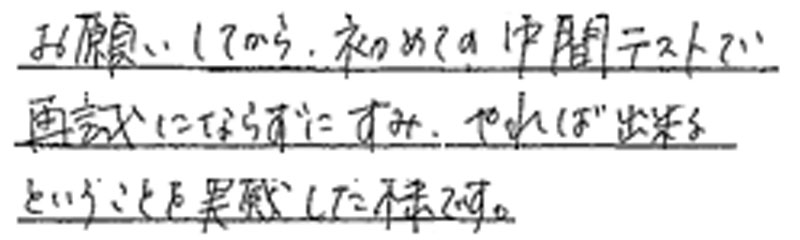 お願いしてから、初めての中間テストで
再試にならずにすみ、やれば出来る
ということを実感した様です。